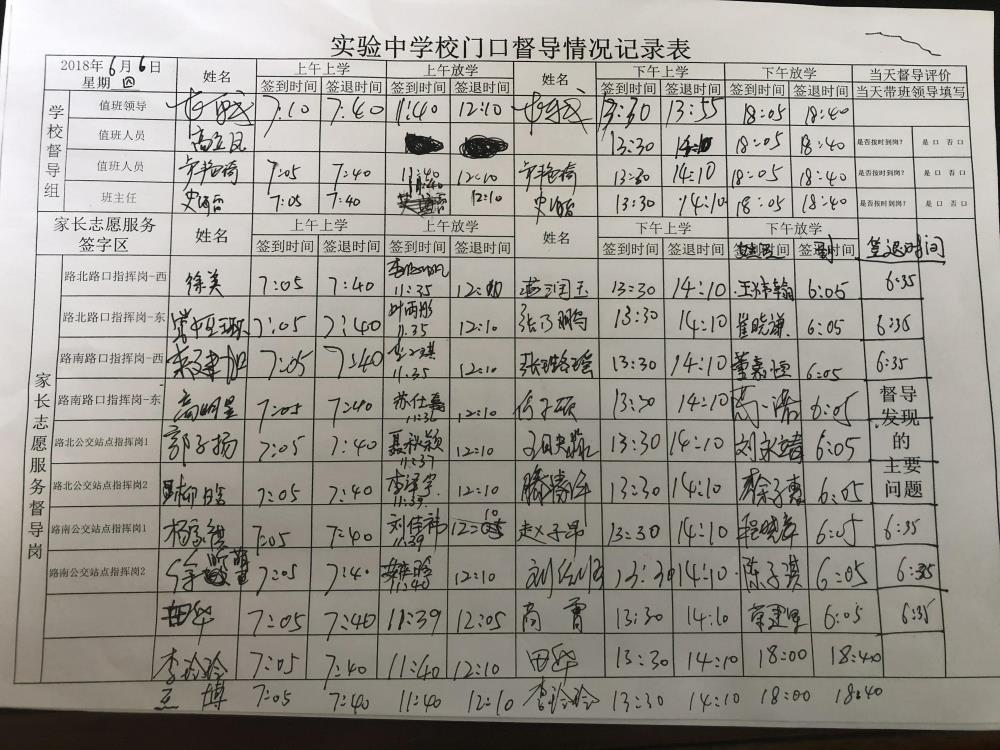 实验中学校门口督导情况记录表
2018年6月6日 星期四 姓名 上午上学 上午放学 姓名 下午上学 下午放学 当天督导评价
签到时间 签退时间 签到时间 签退时间 签到时间 签退时间 签到时间 签退时间 当天带班领导填写
学校督导组
值班领导 7:10 7:40 11:40 12:10 13:30 13:55 18:05 18:40
值班人员 13:30 18:05 18:40 是否按时到岗? 是口 否口
值班人员 7:05 7:40 11:40 12:10 13:30 14:10 18:05 18:40 是否按时到岗? 是口 否口
班主任 7:05 7:40 11:40 12:10 13:30 14:10 18:05 18:40 是否按时到岗? 是口 否口
家长志愿服务签字区 姓名 上午上学 上午放学 姓名 下午上学 下午放学
签到时间 签退时间 签到时间 签退时间 签到时间 签退时间 签退时间
家长志愿服务督导岗
路北路口指挥岗-西 徐美 7:05 7:40 11:35 13:30 14:10 6:05 6:35
路北路口指挥岗-东 7:05 7:40 11:35 12:10 13:30 14:10 崔晓谦 6:05 6:35
路南路口指挥岗-西 7:05 7:40 11:35 12:10 13:30 14:10 董嘉恒 6:05 6:35
路南路口指挥岗-东 高明星 7:05 7:40 苏仕嘉 12:10 13:30 14:10 6:05
督导发现的主要问题
路北公交站点指挥岗1 郭子扬 7:05 7:40 聂秋颖 11:37 12:10 13:30 14:10 刘永靖 6:05
路北公交站点指挥岗2 7:05 7:40 李泽宇 11:39 12:10 13:30 14:10 6:05
路南公交站点指挥岗1 7:05 7:40 刘佳祎 11:39 赵子昂 13:30 14:10 6:05 6:35
路南公交站点指挥岗2 7:05 7:40 11:40 12:10 13:30 14:10 陈子淇 6:05 6:35
田华 7:05 7:40 11:39 12:05 高曹 13:30 14:10 6:05 6:35
李玲玲 7:05 7:40 11:40 12:10 田华 13:30 14:10 18:00 18:40
王博 7:05 7:40 11:40 12:10 李玲玲 13:30 14:10 18:00 18:40